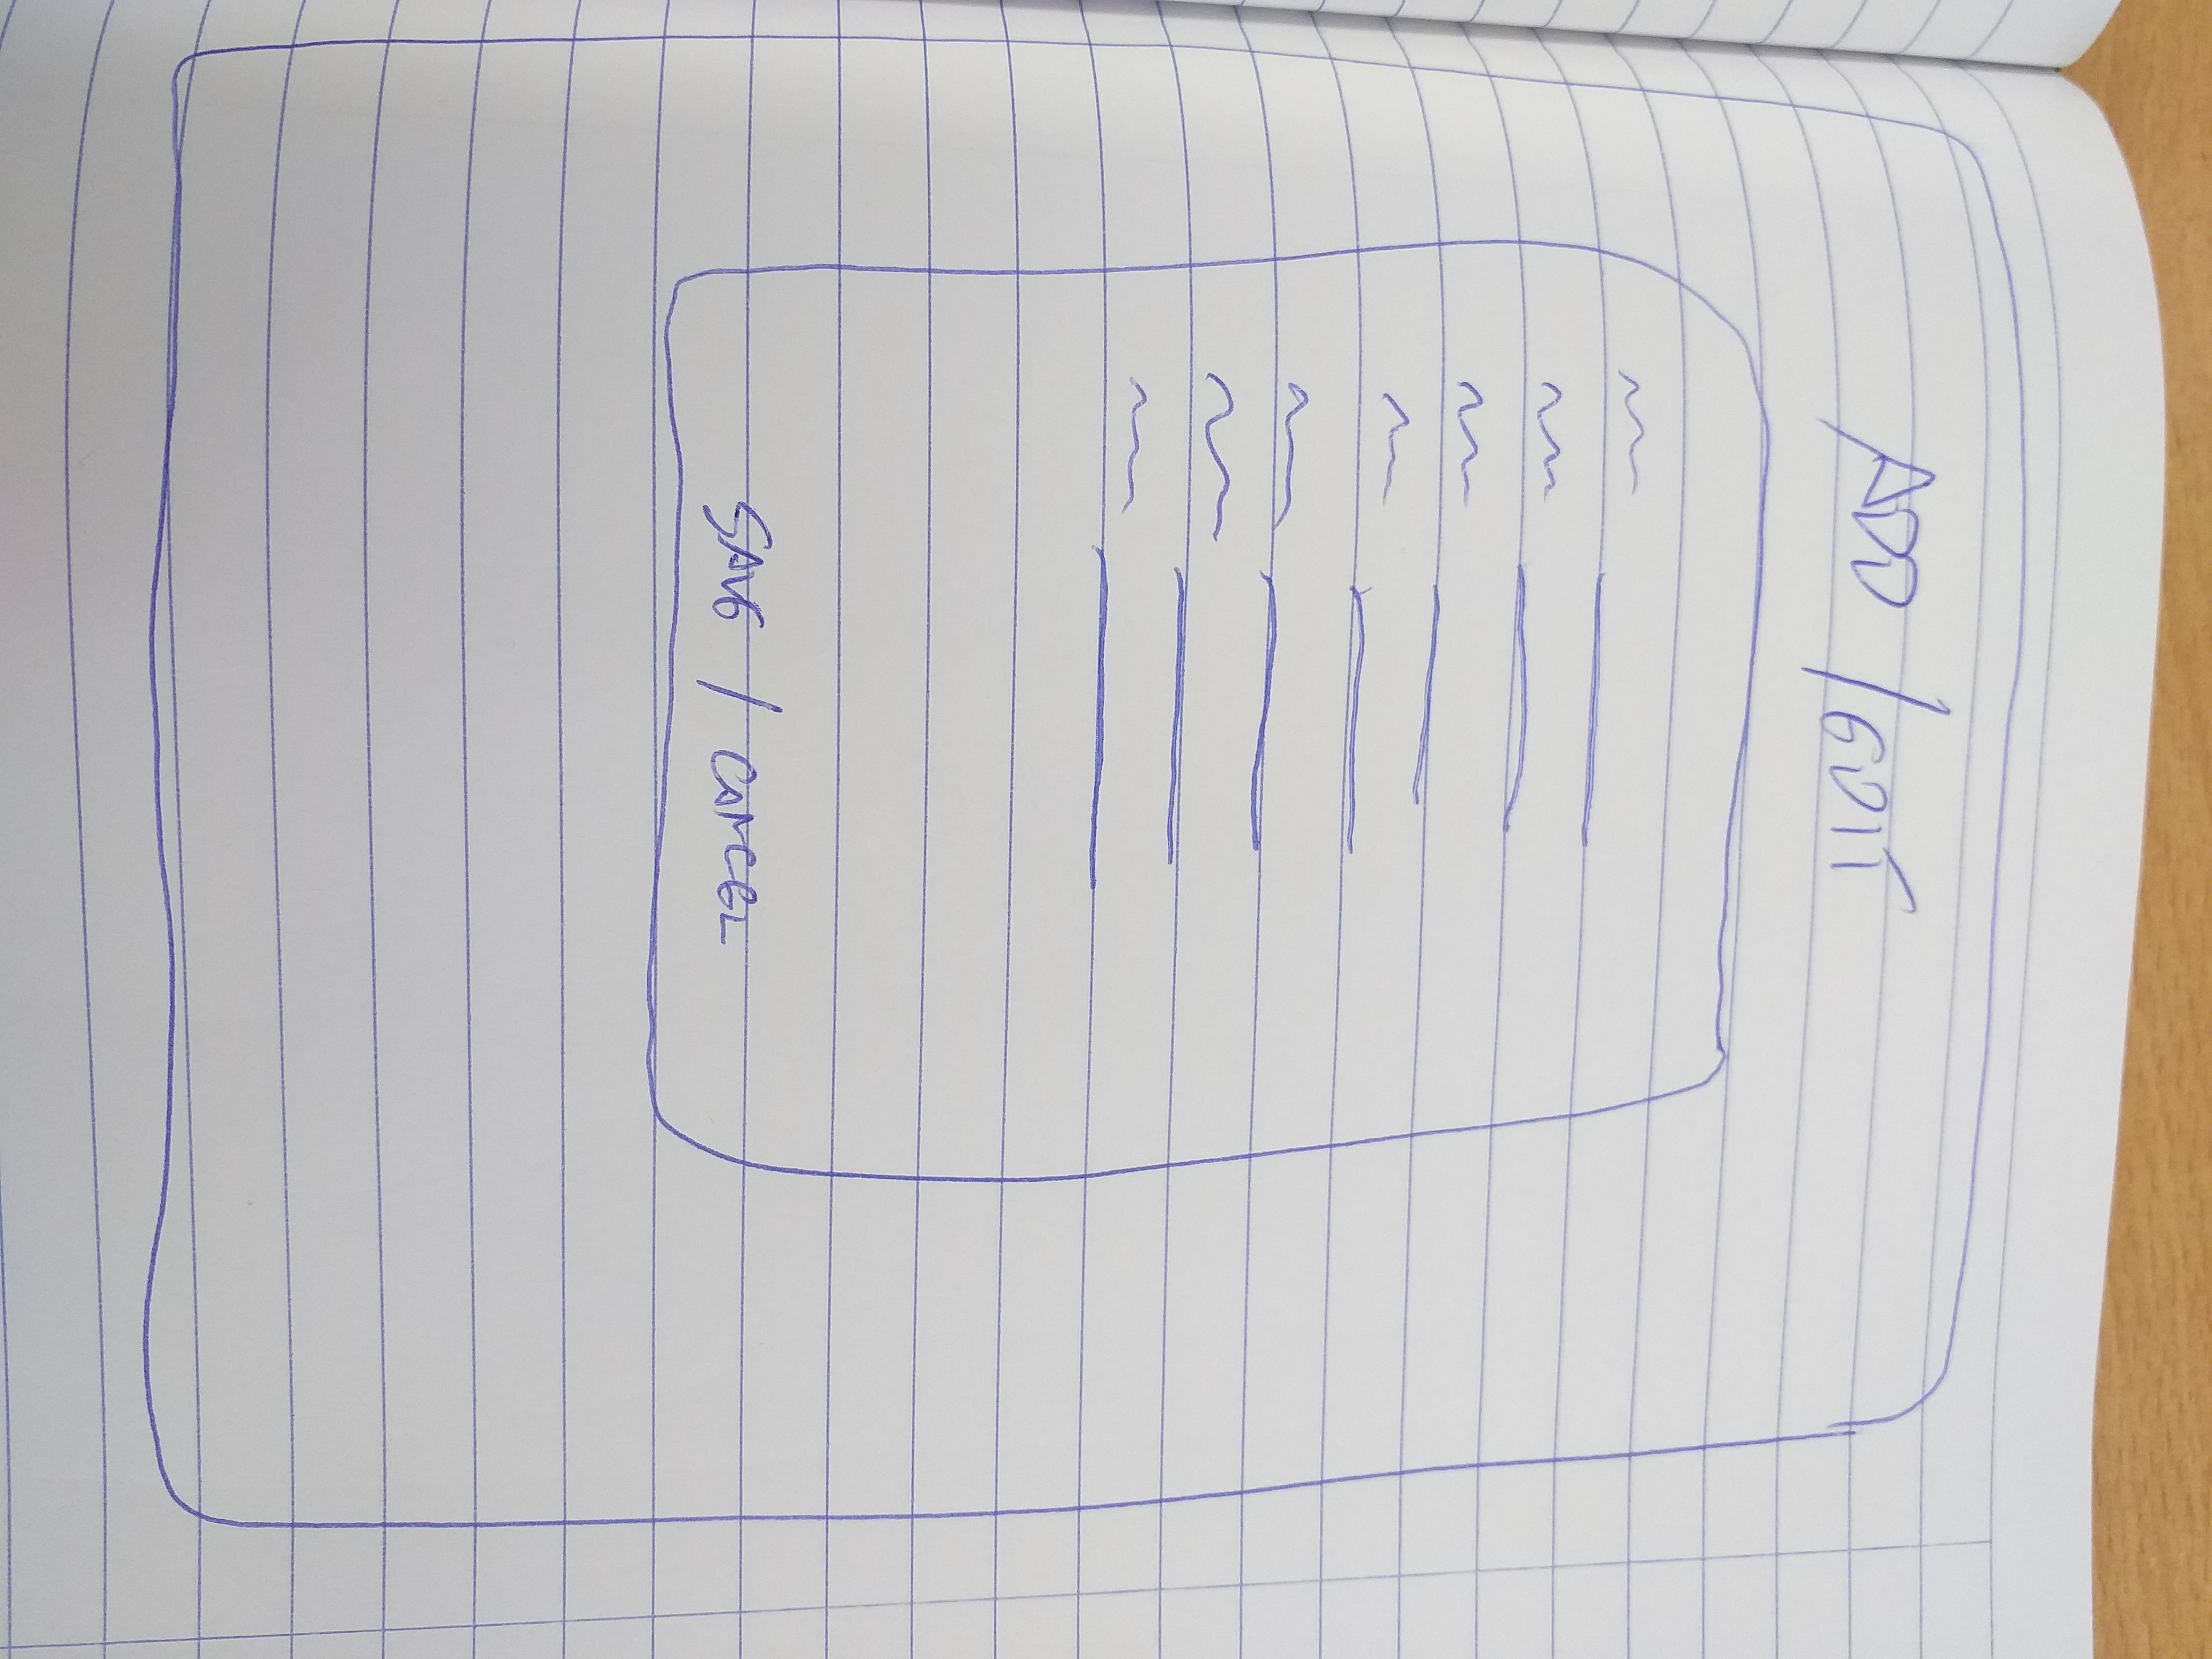 ADD / EDIT
SAVE / CANCEL